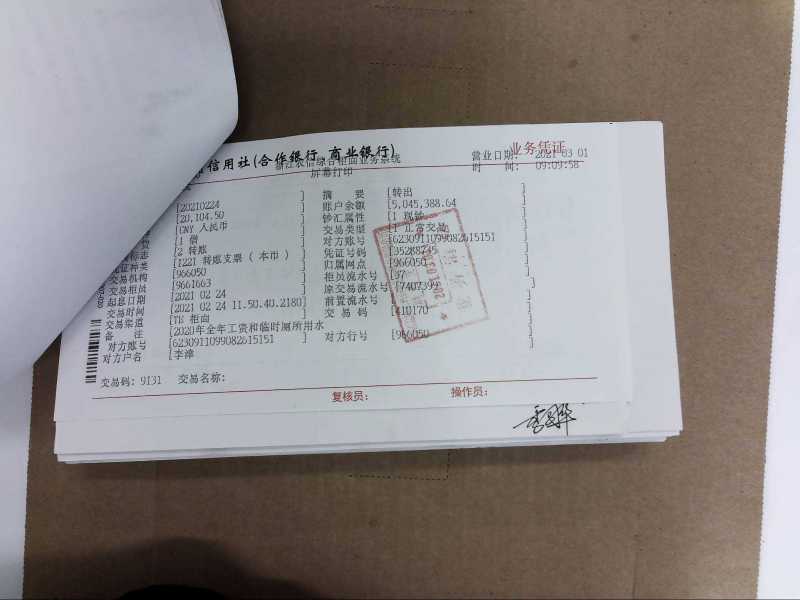 信用社(合作银行 商业银行) 业务凭证
浙江农信综合柜面业务系统 营业日期: 2021 03 01
屏幕打印 时 间: 09:09:58
[20210224 ] 摘 要 [转出 ]
[20,104.50 ] 账户余额 [5,045,388.64 ]
[CNY 人民币 ] 钞汇属性 [1 现钞 ]
[1 借 ] 交易类型 [1 正常交易 ]
标志 [2 转账 ] 对方账号 [6230911099082615151 ]
凭证种类 [1221 转账支票 ( 本币 ) ] 凭证号码 [35288745 ]
交易机构 [966050 ] 归属网点 [966050 ]
交易柜员 [9661663 ] 柜员流水号 [37 ]
起息日期 [2021 02 24 ] 原交易流水号 [7407399 ]
交易时间 [2021 02 24 11.50.40.2180] 前置流水号 [ ]
交易渠道 [TE 柜面 ] 交 易 码 [410170 ]
备 注 [2020年全年工资和临时厕所用水 ]
对方账号 [6230911099082615151 ] 对方行号 [966050 ]
对方户名 [李漳 ]
交易码: 9131 交易名称:
复核员: 操作员: